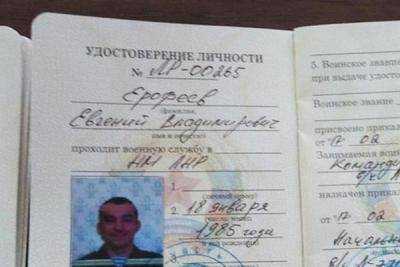 УДОСТОВЕРЕНИЕ ЛИЧНОСТИ
№ ЛР-00265
Ерофеев
фамилия
Евгений Владимирович
имя и отчество
проходит военную службу в
НМ ЛНР
1.
2. 18 января
1985 года
5. Воинское звание
при выдаче удосто
Воинское звание
присвоено приказ
от 17 02
Занимаемая воинс
Команди
назначен приказ
от 17 02
Начальн